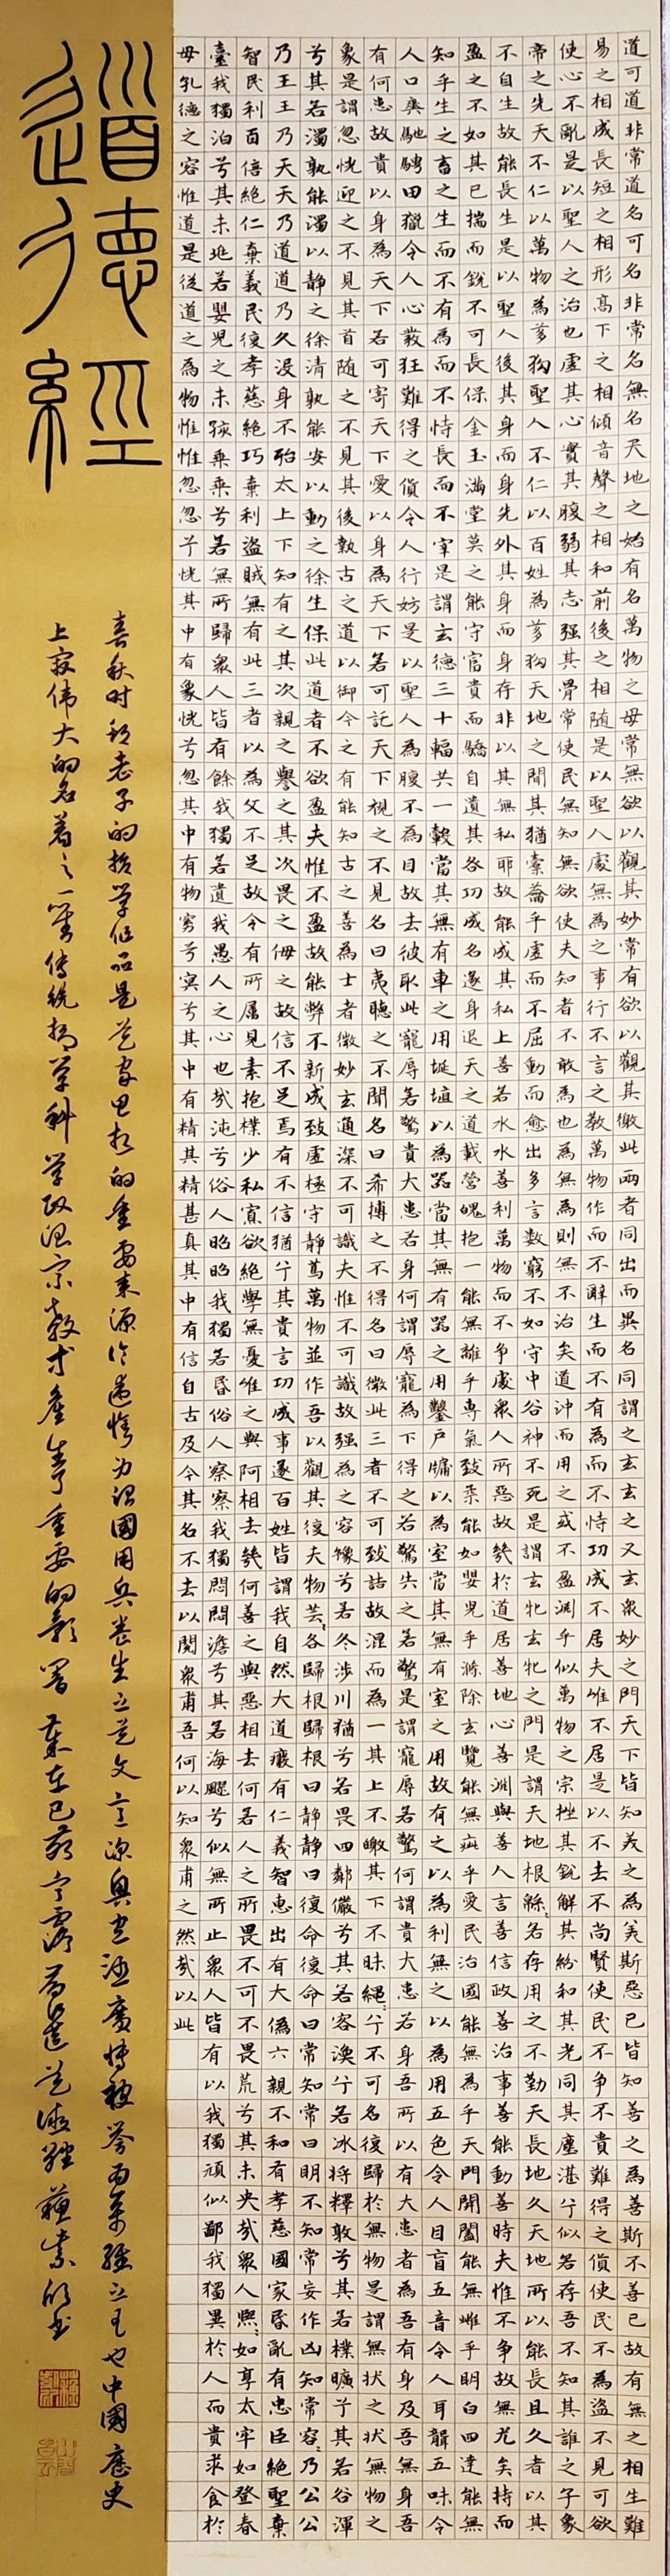 道可道非常道名可名非常名無名天地之始有名萬物之母常無欲以觀其妙常有欲以觀其徼此兩者同出而異名同謂之玄玄之又玄衆妙之門天下皆知美之為美斯惡已皆知善之為善斯不善已故有無之相生難
易之相成長短之相形高下之相傾音聲之相和前後之相随是以聖人處無為之事行不言之教萬物作而不辭生而不有為而不恃功成不居夫唯不居是以不去不尚賢使民不争不貴難得之貨使民不為盜不見可欲
使心不亂是以聖人之治也虛其心實其腹弱其志强其骨常使民無知無欲使夫知者不敢為也為無為則無不治矣道沖而用之或不盈淵乎似萬物之宗挫其銳解其紛和其光同其塵湛兮似若存吾不知其誰之子象
帝之先天不仁以萬物為芻狗聖人不仁以百姓為芻狗天地之間其猶橐籥乎虛而不屈動而愈出多言數窮不如守中谷神不死是謂玄牝玄牝之門是謂天地根緜緜若存用之不勤天長地久天地所以能長且久者以其
不自生故能長生是以聖人後其身而身先外其身而身存非以其無私耶故能成其私上善若水水善利萬物而不争處衆人所惡故幾於道居善地心善淵與善人言善信政善治事善能動善時夫惟不争故無尤矣持而
盈之不如其已揣而銳不可長保金玉滿堂莫之能守富貴而驕自遺其咎功成名遂身退天之道載營魄抱一能無離乎專氣致柔能如嬰兒乎滌除玄覽能無疵乎愛民治國能無為乎天門開闔能無雌乎明白四達能無
知乎生之畜之生而不有為而不恃長而不宰是謂玄德三十輻共一轂當其無有車之用埏埴以為器當其無有器之用鑿戶牖以為室當其無有室之用故有之以為利無之以為用五色令人目盲五音令人耳聾五味令
人口爽馳騁田獵令人心發狂難得之貨令人行妨是以聖人為腹不為目故去彼取此寵辱若驚貴大患若身何謂辱寵為下得之若驚失之若驚是謂寵辱若驚何謂貴大患若身吾所以有大患者為吾有身及吾無身吾
有何患故貴以身為天下若可寄天下愛以身為天下若可託天下視之不見名曰夷聽之不聞名曰希搏之不得名曰微此三者不可致詰故混而為一其上不皦其下不昧繩繩兮不可名復歸於無物是謂無狀之狀無物之
象是謂忽恍迎之不見其首随之不見其後執古之道以御今之有能知古之善為士者微妙玄通深不可識夫惟不可識故强為之容豫兮若冬涉川猶兮若畏四鄰儼兮其若容渙兮若冰將釋敦兮其若樸曠兮其若谷渾
兮其若濁孰能濁以靜之徐清孰能安以動之徐生保此道者不欲盈夫惟不盈故能弊不新成致虛極守靜篤萬物並作吾以觀其復夫物芸芸各歸根歸根曰靜靜曰復命復命曰常知常曰明不知常妄作凶知常容容乃公公
乃王王乃天天乃道道乃久沒身不殆太上下知有之其次親之譽之其次畏之侮之故信不足焉有不信猶兮其貴言功成事遂百姓皆謂我自然大道廢有仁義智惠出有大偽六親不和有孝慈國家昏亂有忠臣絕聖棄
智民利百倍絕仁棄義民復孝慈絕巧棄利盜賊無有此三者以為父不足故令有所屬見素抱樸少私寡欲絕學無憂唯之與阿相去幾何善之與惡相去何若人之所畏不可不畏荒兮其未央哉衆人熙熙如享太牢如登春
臺我獨泊兮其未兆若嬰兒之未孩乘乘兮若無所歸衆人皆有餘我獨若遺我愚人之心也哉沌兮俗人昭昭我獨若昏俗人察察我獨悶悶澹兮其若海飂兮似無所止衆人皆有以我獨頑似鄙我獨異於人而貴求食於
母孔德之容惟道是從道之為物惟惟忽忽兮恍其中有象恍兮忽其中有物窈兮冥兮其中有精其精甚真其中有信自古及今其名不去以閱衆甫吾何以知衆甫之然哉以此
道德經
春秋時期老子的哲學作品是道家思想的重要來源論述修身治國用兵養生之道文意深奧包涵廣博被誉為萬經之王也中國歷史
上最偉大的名著之一對傳統哲學科學政治宗教等產生了重要的影響 歲在己 寒露 道德經 蘇素欣書